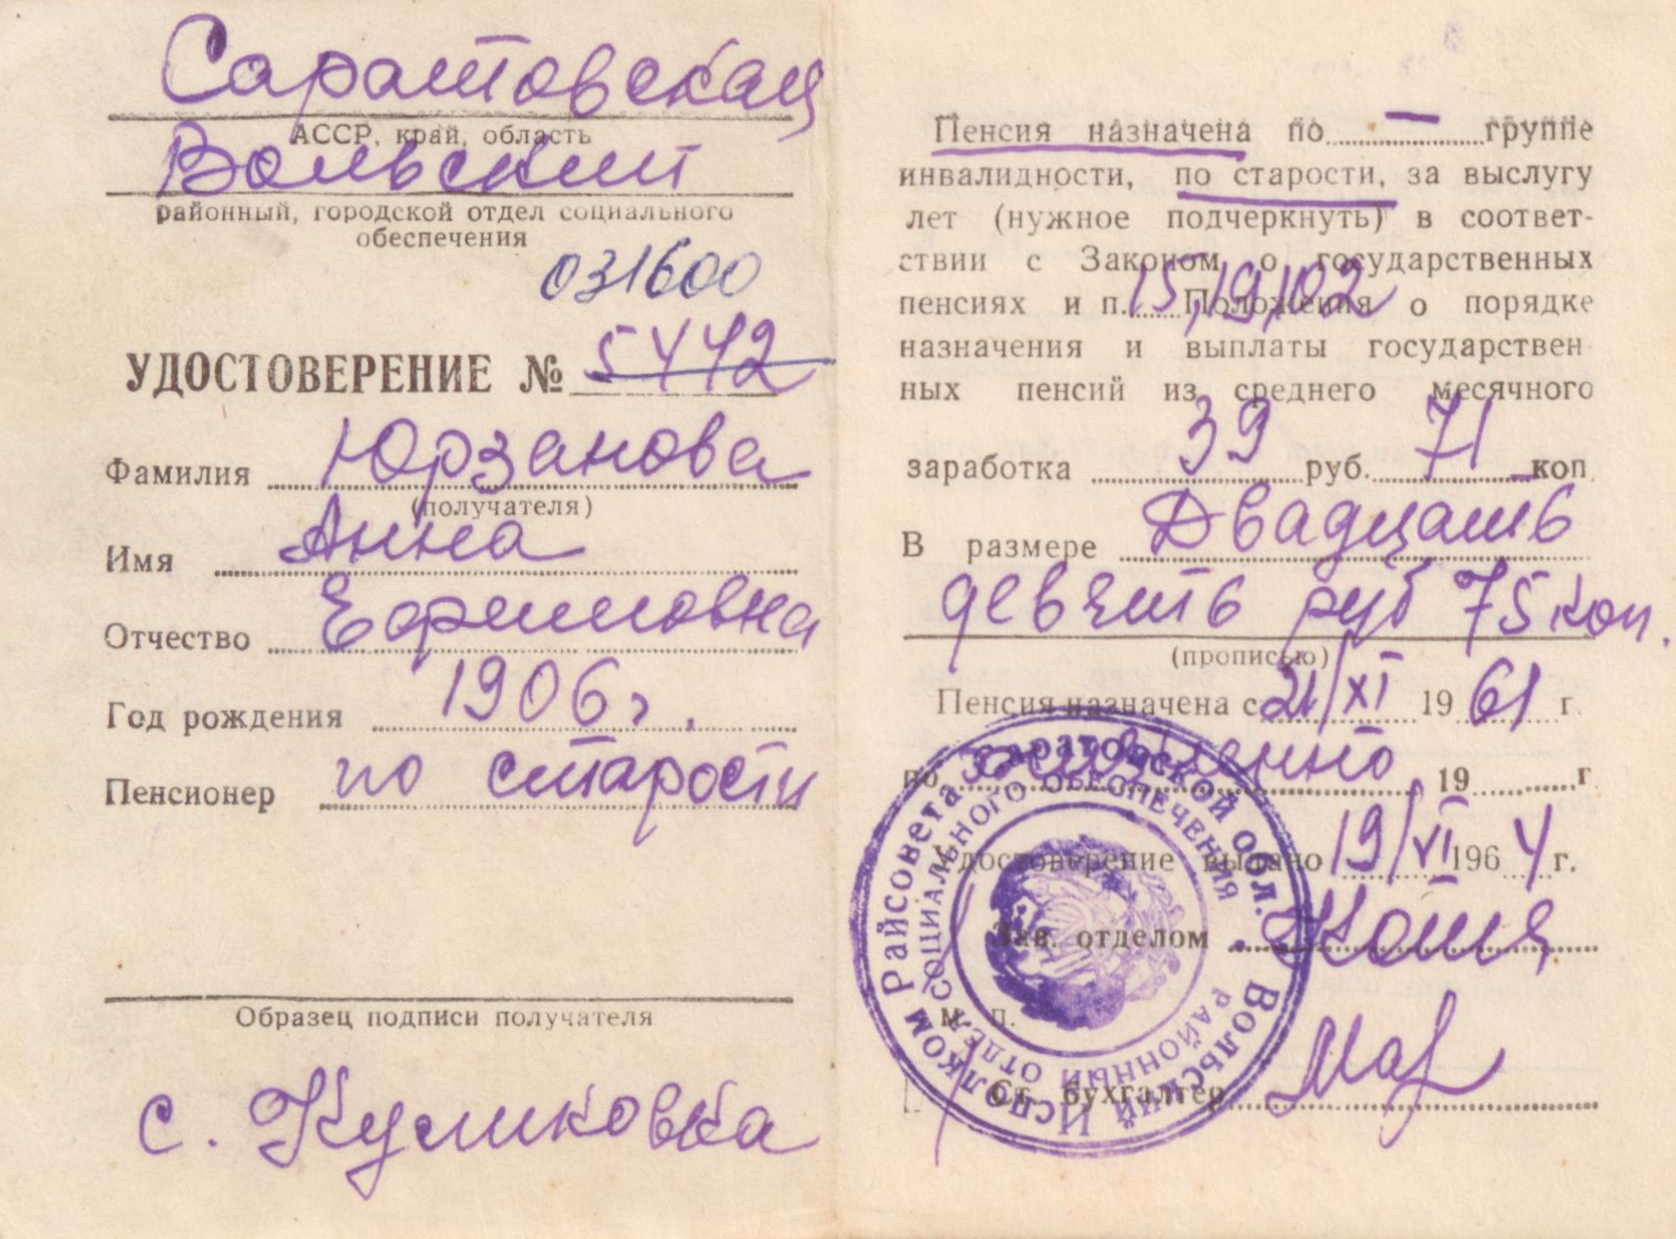 Саратовская
АССР, край, область
Вольский
районный, городской отдел социального
обеспечения
031600
УДОСТОВЕРЕНИЕ № 5442
Фамилия Юрзанова
(получателя)
Имя Анна
Отчество Ефимовна
Год рождения 1906 г.
Пенсионер по старости
Образец подписи получателя
с. Куликовка
Пенсия назначена по — группе
инвалидности, по старости, за выслугу
лет (нужное подчеркнуть) в соответ-
ствии с Законом о государственных
пенсиях и п. 15, 19, 102 Положения о порядке
назначения и выплаты государствен
ных пенсий из среднего месячного
заработка 39 руб. 71 коп
В размере Двадцать
девять руб 75 коп.
(прописью)
Пенсия назначена с 21/XI 1961 г.
по пожизненно 19 г
Удостоверение выдано 19/VI 1964 г.
Зав. отделом
М. П.
Ст. бухгалтер
Исполком Райсовета Саратовской обл. Вольский
РАЙОННЫЙ ОТДЕЛ СОЦИАЛЬНОГО ОБЕСПЕЧЕНИЯ